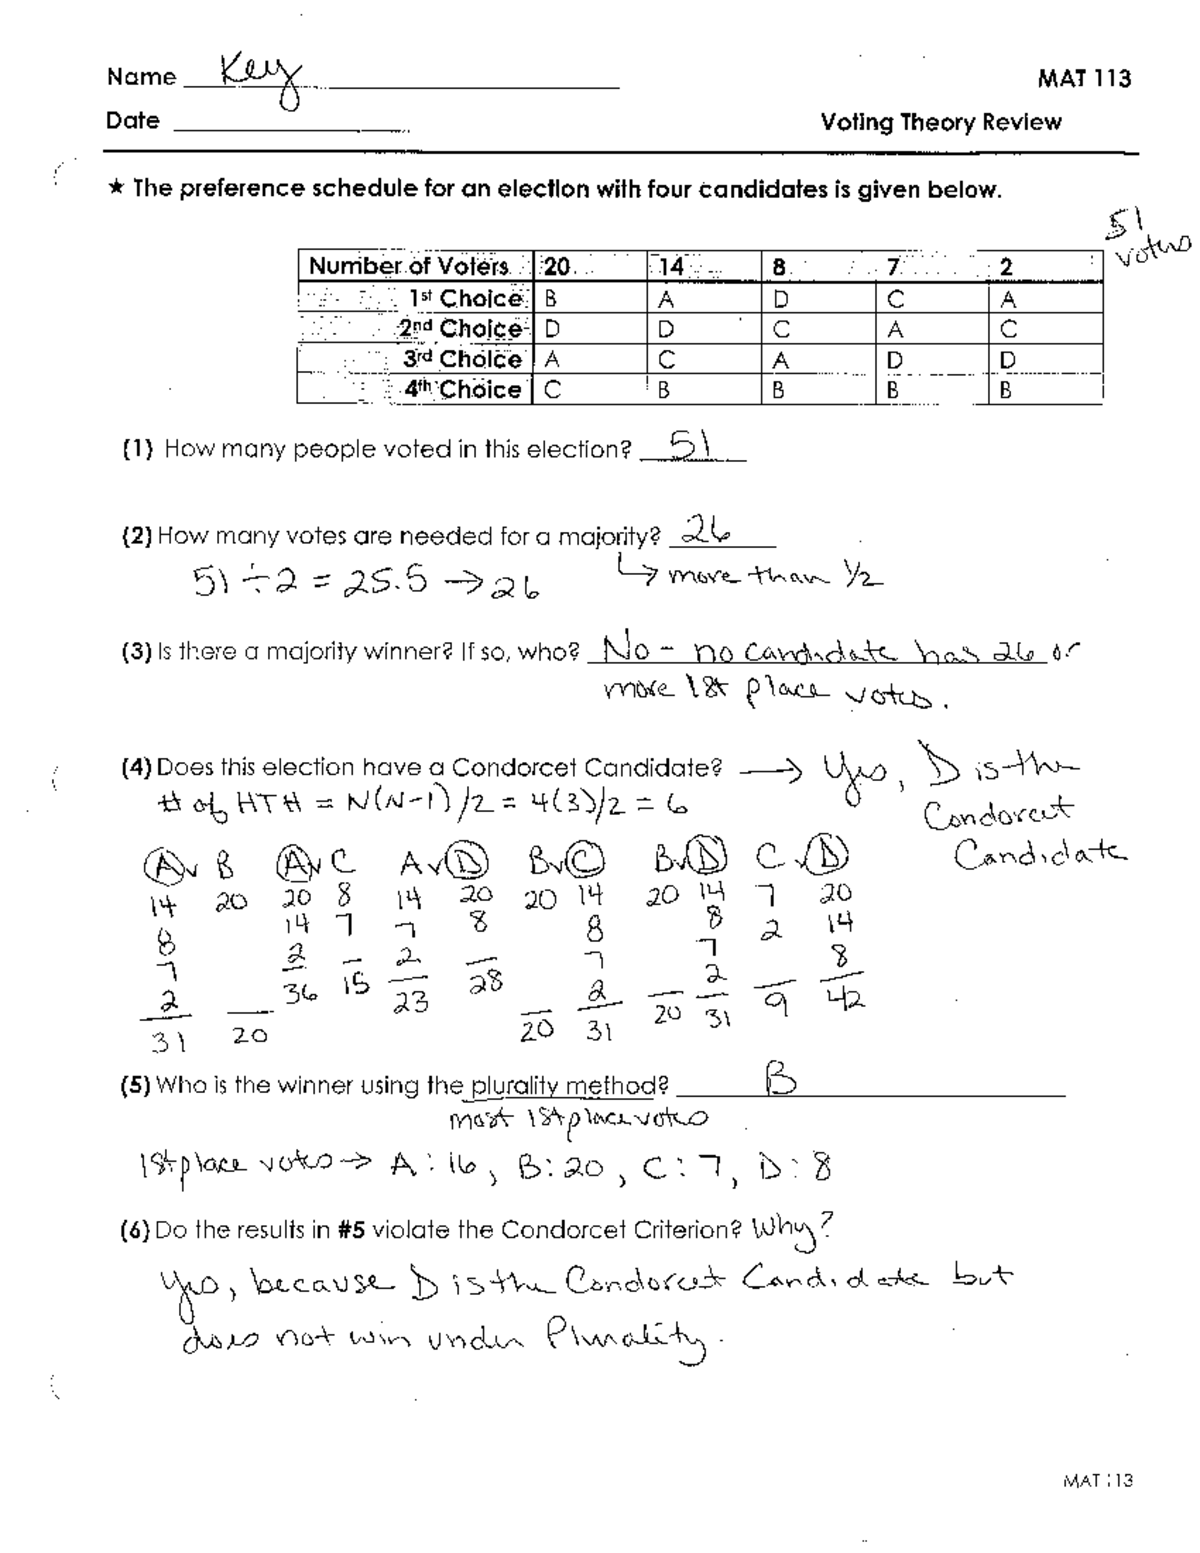 Name Key MAT 113
Date Voting Theory Review
★ The preference schedule for an election with four candidates is given below.
51 voters
Number of Voters 20 14 8 7 2
1st Choice B A D C A
2nd Choice D D C A C
3rd Choice A C A D D
4th Choice C B B B B
(1) How many people voted in this election? 51
(2) How many votes are needed for a majority? 26
51 ÷ 2 = 25.5 → 26 ↳ more than 1/2
(3) Is there a majority winner? If so, who? No - no candidate has 26 or
more 1st place votes.
(4) Does this election have a Condorcet Candidate? → Yes, D is the
Condorcet
Candidate
# of HTH = N(N-1)/2 = 4(3)/2 = 6
A v B A v C A v D B v C B v D C v D
14 20 20 8 14 20 20 14 20 14 7 20
8 14 7 7 8 8 8 2 14
7 2 2 7 7 8
2 36 15 23 28 2 2 9 42
31 20 20 31 20 31
(5) Who is the winner using the plurality method? B
most 1st place votes
1st place votes → A: 16, B: 20, C: 7, D: 8
(6) Do the results in #5 violate the Condorcet Criterion? Why?
Yes, because D is the Condorcet Candidate but
does not win under Plurality.
MAT 113